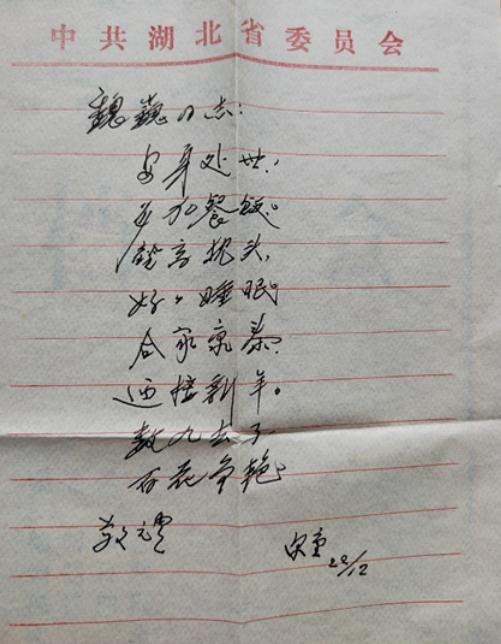 中共湖北省委员会
魏巍同志:
安身处世,
加餐饭。
高枕头,
好好睡眠。
合家康泰,
迎接新年。
数九去了
百花争艳。
敬礼
29/12